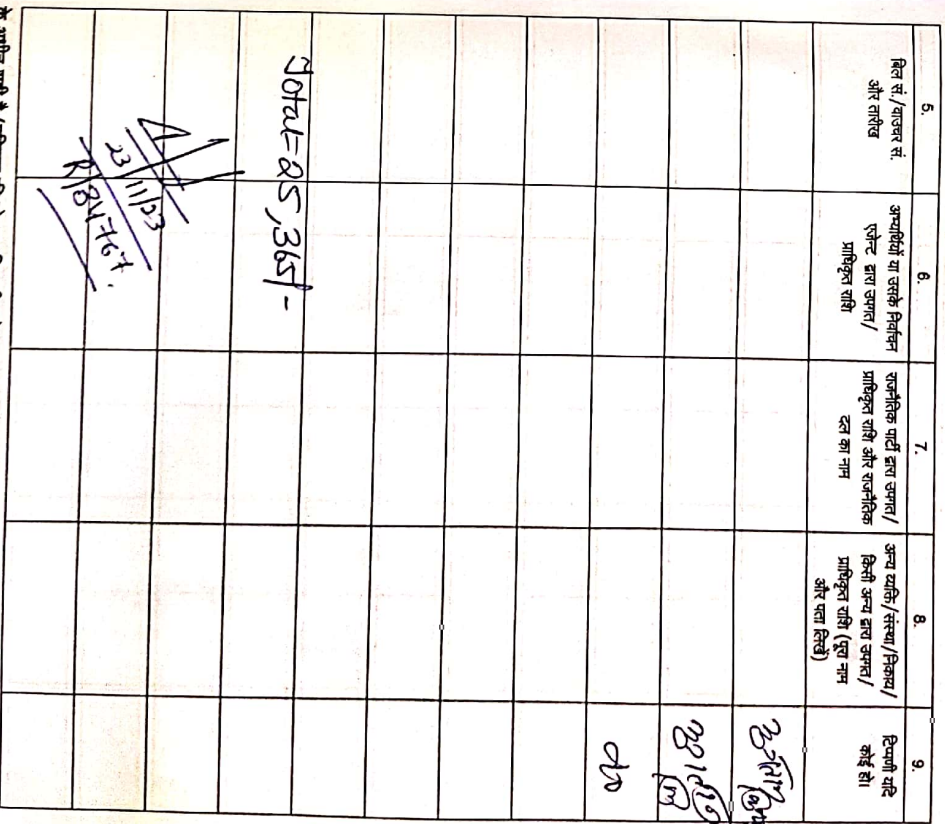 5.
बिल सं./वाउचर सं.
और तारीख
6.
अभ्यर्थियों या उसके निर्वाचन
एजेन्ट द्वारा उपगत/
प्राधिकृत राशि
7.
राजनैतिक पार्टी द्वारा उपगत/
प्राधिकृत राशि और राजनैतिक
दल का नाम
8.
अन्य व्यक्ति/संस्था/निकाय/
किसी अन्य द्वारा उपगत/
प्राधिकृत राशि (पूरा नाम
और पता लिखें)
9.
टिप्पणी यदि
कोई हो।
Total=25,365/-
23/11/23
R/84767.